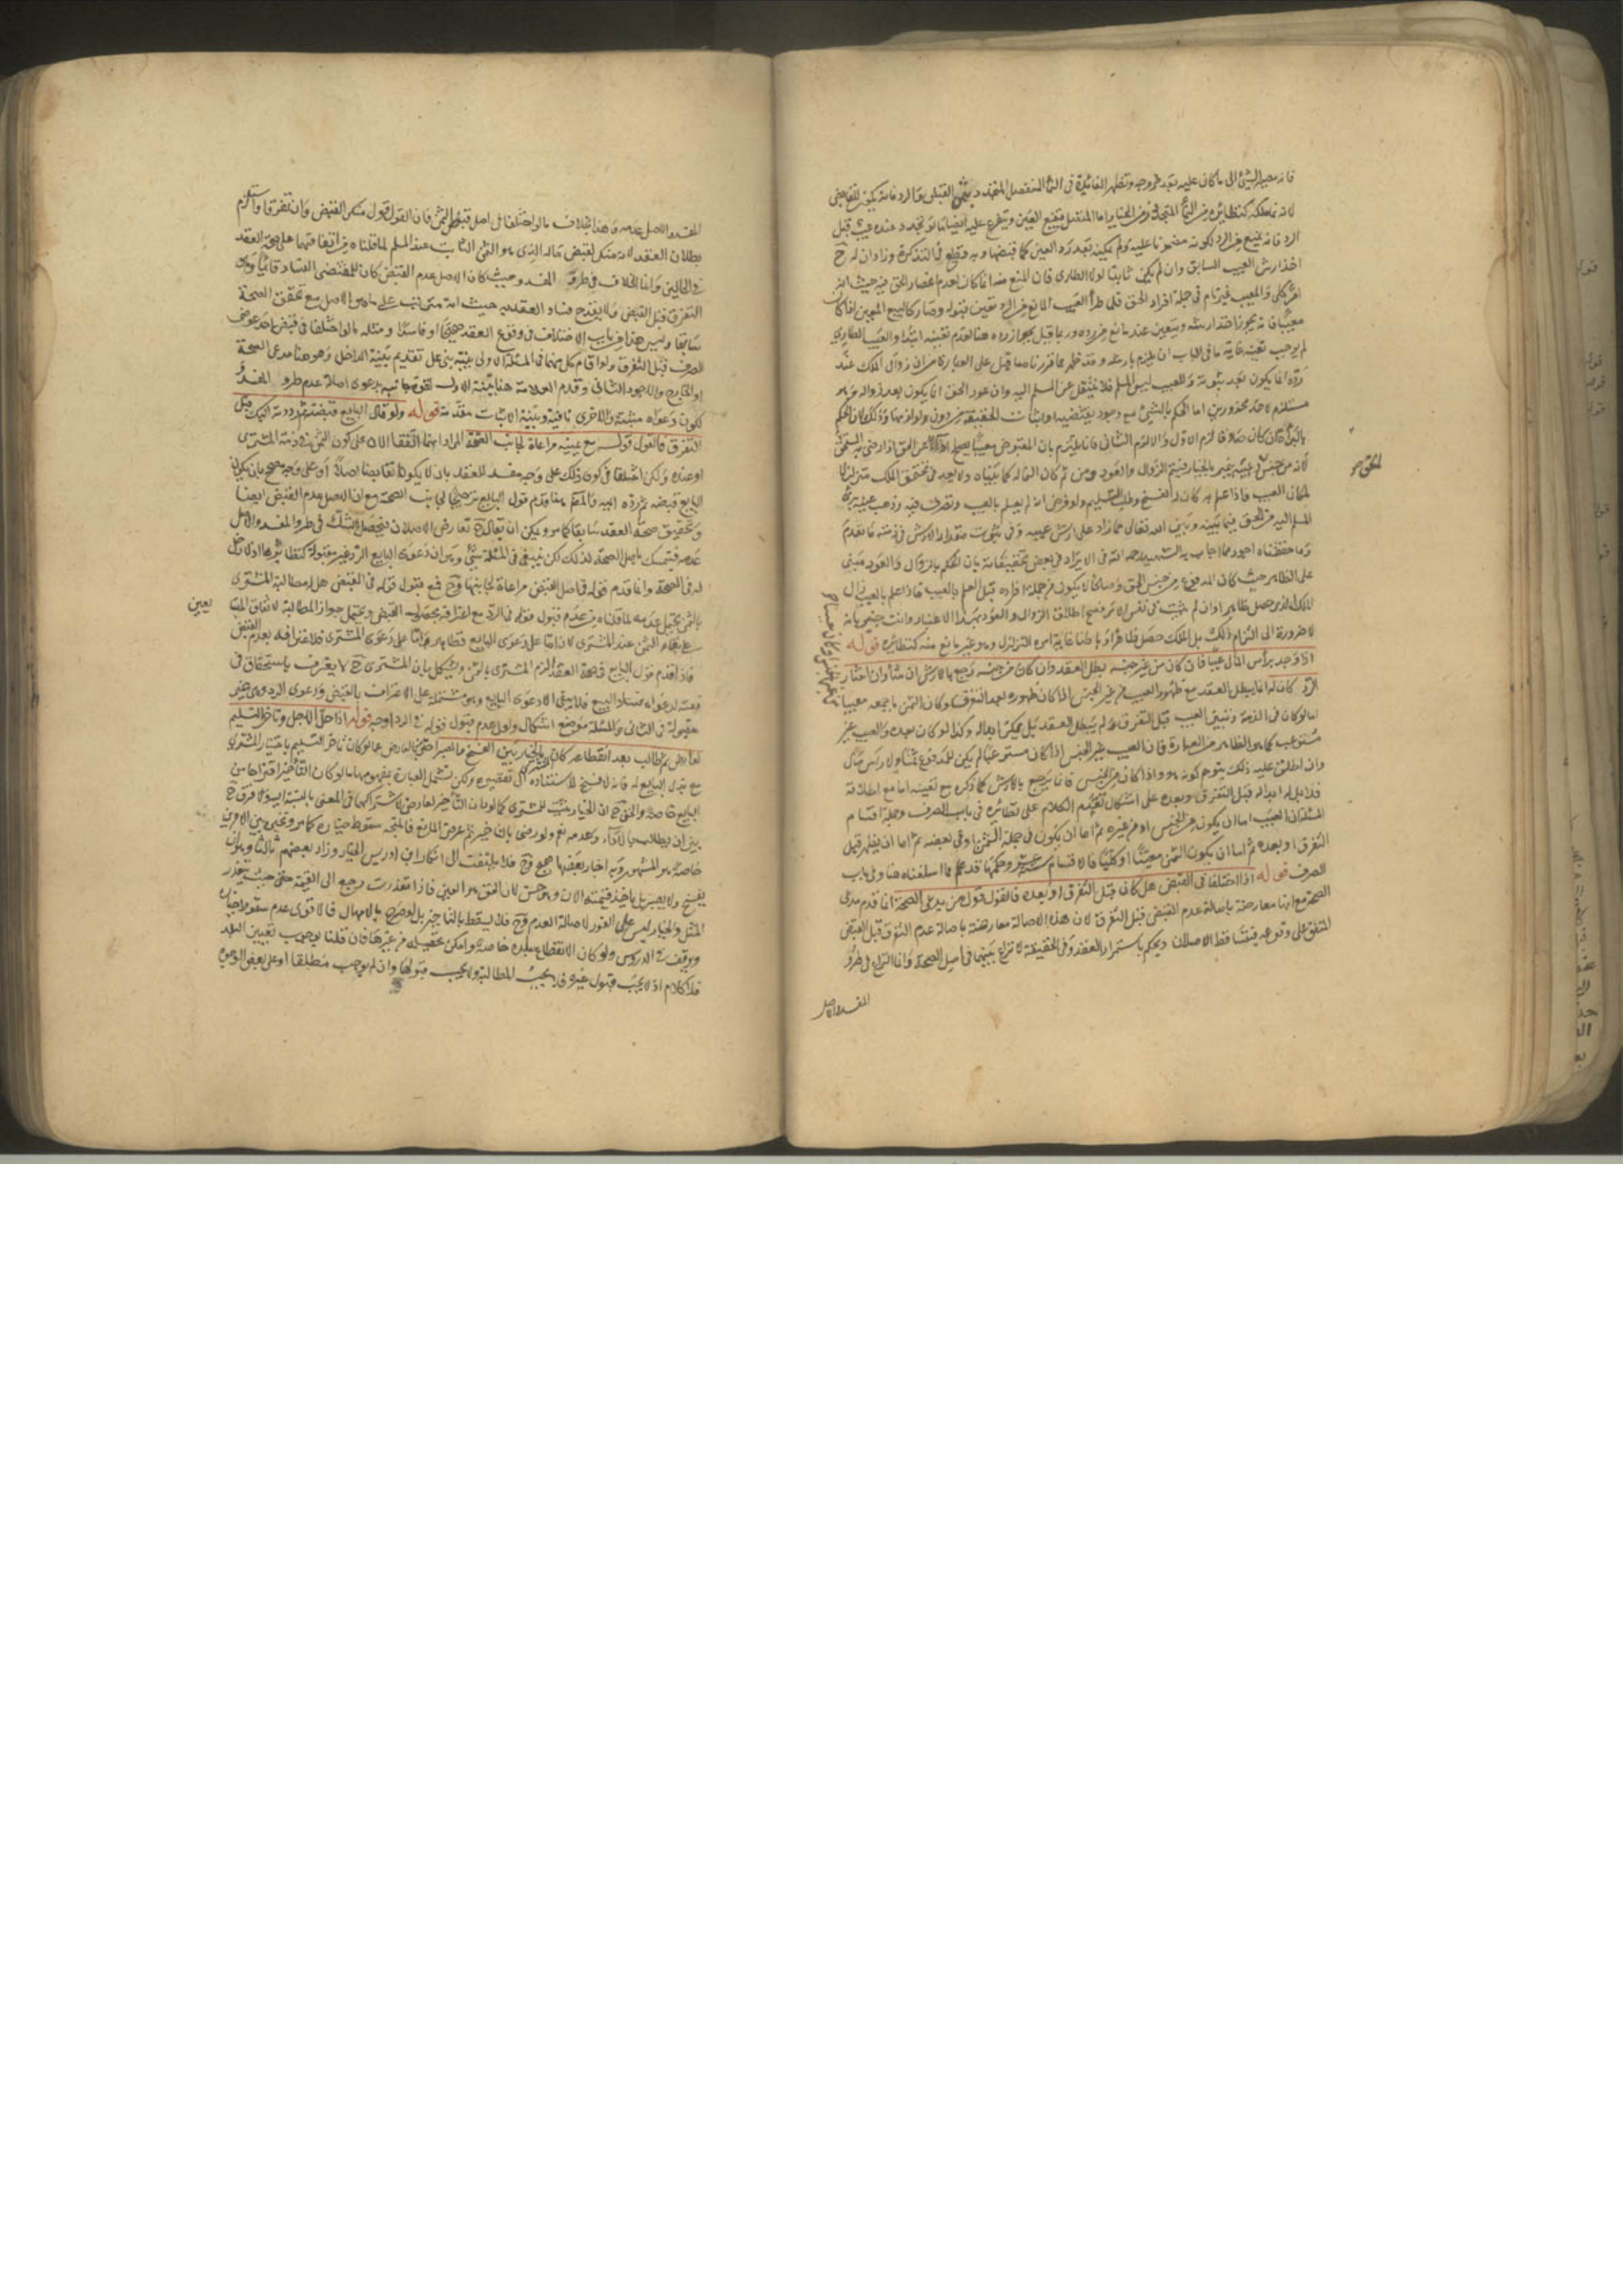 فانه يصير الشئ الى ما كان عليه بعد خروجه وتظهر الفائدة فى النماء المنفصل المتجدد بين القبض والرد فانه يكون للقابض
لانه نماء ملكه كنظائره من النماء المتجدد زمن الخيار اما المتصل فيتبع العين ويتفرع عليه ايضا ما لو تجدد عنده عيب قبل
الرد فانه يمنع من الرد لكونه مضمونا عليه ولم يمكنه بعد رد العين كما قبضها وبه قطع فى التذكرة وزاد ان له ح
اخذ ارش العيب السابق وان لم يكن ثابتا لولا الطارى فان المنع منه انما كان لعدم انحصار الحق فيه حيث انه
امر كلى والمعيب غير تام فى جملة افراد الحق فلما طرأ العيب المانع من الرد تعين قبوله وصار كالمبيع المعين اذا كان
معيبا فانه يجوز اخذ ارشه ويتعين عند مانع من رده وربما قيل بجواز رده هنا لعدم تعينه ابتداء والعيب الطارى
لم يوجب تعينه غاية ما فى الباب ان يلزم بارشه وقد ظهر مما قررناه ما قيل على العبارة من ان زوال الملك عند
رده انما يكون بعد ثبوته والمعيب ليس المسلم فلا ينتقل عن المسلم اليه وان عود الحق انما يكون بعد زواله وهو
مستلزم لاحد محذورين اما الحكم بالشئ مع وجود نقيضه او اثبات الحقيقة من دون لوازمها وذلك لان الحكم
بالبراءة ان كان صادقا لزم الاول والا لزم الثانى فانا نلتزم بان المقبوض معيبا يصلح اداء عن الحق اذا رضى به المستحق
لانه من جنس حقه وعيبه ينجبر بالخيار فيتم الزوال والعود ومن ثم كان النماء له كما بيناه ولا بعد فى تحقق الملك متزلزلا
لمكان العيب فاذا علم به كان له الفسخ وطلب السليم ولو فرض انه لم يعلم بالعيب وتصرف فيه وذهب عينه برئ
المسلم اليه من الحق فيما بينه وبين الله تعالى مما زاد على ارش عيبه وفى ثبوت مقدار الارش فى ذمته ما تقدم
وما حققناه اجود مما اجاب به الشهيد رحمه الله فى الايراد فى بعض تحقيقاته بان الحكم بالزوال والعود مبنى
على الظاهر حيث كان المدفوع من جنس الحق وصالحا لان يكون من جملة افراده قبل العلم بالعيب فاذا علم بالعيب زال
الملك الذى حصل ظاهرا وان لم يثبت فى نفس الامر فصح اطلاق الزوال والعود بهذا الاعتبار وانت خبير بانه
لا ضرورة الى التزام ذلك بل الملك حصل ظاهرا وباطنا غايته امره التزلزل وهو غير مانع منه كنظائره قوله
اذا وجد برأس المال عيبا فان كان من غير جنسه بطل العقد وان كان من جنسه رجع بالارش ان شاء وان اختار
الرد كان له انما يبطل العقد مع ظهور العيب من غير الجنس اذا كان ظهوره بعد التفرق وكان الثمن باجمعه معيبا
اما لو كان فى الذمة وتبين العيب قبل التفرق لم يبطل العقد بل يمكن ابداله وكذا لو كان بعده والعيب غير
مستوعب كما هو الظاهر من العبارة فان العيب من غير الجنس اذا كان مستوعبا لم يكن المدفوع ثمنا ولا رأس مال
وان اطلق عليه ذلك بتوهم كونه هو واذا كان من الجنس فانما يرجع بالارش كما ذكره مع تعينه اما مع اطلاقه
فله ابداله قبل التفرق وبعده على اشكال تقدم الكلام على نظائره فى باب الصرف وجملة اقسام
المسئلة ان العيب اما ان يكون من الجنس او من غيره ثم اما ان يكون فى جملة الثمن او فى بعضه ثم اما ان يظهر قبل
التفرق او بعده ثم اما ان يكون الثمن معينا او كليا فالاقسام ستة عشر وحكمها قد علم مما اسلفناه هنا وفى باب
الصرف قوله اذا اختلفا فى القبض هل كان قبل التفرق او بعده فالقول قول من يدعى الصحة انما قدم مدعى
الصحة مع انها معارضة باصالة عدم القبض قبل التفرق لان هذه الاصالة معارضة باصالة عدم التفرق قبل القبض
المتفق على وقوعه فيتساقط الاصلان ويحكم باستمرار العقد وفى الحقيقة لا نزاع بينهما فى اصل الصحة وانما النزاع فى طرو
المفسد والاصل
الحق صح
المفسد والاصل عدمه وهذا بخلاف ما لو اختلفا فى اصل قبض الثمن فان القول قول منكر القبض وان تفرقا واستلزم
بطلان العقد لانه منكر لقبض ماله الذى هو الثمن الثابت عند المسلم لما قلناه من اتفاقهما على صحة العقد
فى الحالين وانما الخلاف فى طرو المفسد وحيث كان الاصل عدم القبض كان المقتضى للفساد قائما وهو
التفرق قبل القبض ولا يقدح فساد العقد به حيث انه مترتب على ما هو الاصل مع تحقق الصحة
سابقا وليس هذا من باب الاختلاف فى وقوع العقد صحيحا او فاسدا ومثله ما لو اختلفا فى قبض احد عوضى
الصرف قبل التفرق ولو اقام كل منهما فى المسئلة الاولى بينة بنى على تقديم بينة الداخل وهو هنا مدعى الصحة
او الخارج والاجود الثانى وقدم العلامة هنا بينة الاول لقوة جانبه بدعوى اصالة عدم طرو المفسد
لكون دعواه مثبتة والاخرى نافية وبينة الاثبات مقدمة قوله ولو قال البايع قبضته ثم رددته اليك قبل
التفرق فالقول قوله مع يمينه مراعاة لجانب الصحة المراد انهما اتفقا الان على كون الثمن فى ذمة المشترى
او عنده ولكن اختلفا فى كون ذلك على وجه مفسد للعقد بان لا يكونا تقابضا اصلا او على وجه صحيح بان يكون
البايع قبضه ثم رده اليه فالمقدم هنا قول البايع ترجيحا لجانب الصحة مع ان الاصل عدم القبض ايضا
وتحقيق صحة العقد سابقا كما مر ويمكن ان يقال ح تعارض الاصلان فيحصل الشك فى طرو المفسد والاصل
عدمه فيتمسك باصل الصحة لذلك لكن يبقى فى المسئلة شئ وهو ان دعوى البايع الرد غير مقبولة كنظائرها اذ لا دخل
له فى الصحة وانما قدم قوله فى اصل القبض مراعاة لجانبها وح فمع قبول قوله فى القبض هل له مطالبة المشترى
بالثمن يحتمل عدمه لما قلناه من عدم قبول قوله فى الرد مع اعترافه بحصول القبض ويحتمل جواز المطالبة لاتفاق المتبايعين
على بقاء الثمن عند المشترى الان اما على دعوى البايع فظاهر واما على دعوى المشترى فلاعترافه بعدم القبض
فاذا قدم قول البايع فى صحة العقد الزم المشترى بالثمن ويشكل بان المشترى ح لا يعترف باستحقاق فى
ذمته لدعواه فساد البيع فلم يبق الا دعوى البايع وهى مشتملة على الاعتراف بالقبض ودعوى الرد وهى غير
مقبولة فى الثانى والمسئلة موضع اشكال ولعل عدم قبول قوله فى الرد اوجه قوله اذا حل الاجل وتأخر التسليم
لعارض ثم طالب بعد انقطاعه كان بالخيار بين الفسخ والصبر احترز بالعارض عما لو كان تأخر التسليم باختيار المشترى
مع بذل البايع له فانه لا فسخ لاستناده الى تقصيره ولكن تشمل العبارة بمفهومها ما لو كان التأخير اقتراحا من
البايع خاصة والحق ح ان الخيار يثبت للمشترى كما لو بان التأخير لعارض لاشتراكهما فى المعنى بالنسبة اليه ولا فرق ح
بين ان يطالب بالاداء وعدمه نعم لو رضى بالتأخير ثم عرض المانع فالمتجه سقوط خياره كما مر وتخييره بين الامرين
خاصة هو المشهور وبه اخبار بعضها صحيح وح فلا يلتفت الى انكار ابن ادريس الخيار وزاد بعضهم ثالثا وهو ان
يفسخ ولا يصبر بل ياخذ قيمته الان وهو حسن لان الحق هو العين فاذا تعذرت رجع الى القيمة حتى حيث يتعذر
المثل والخيار ليس على الفور لاصالة العدم وح فلا يسقط بالتأخير بل لو صرح بالامهال فالاقوى عدم سقوط خياره
وتوقف فى الدروس ولو كان الانقطاع ببلده خاصة وامكن تحصيله من غيرها فان قلنا بوجوب تعيين البلد
فلا كلام اذ لا يجب قبول غيره فلا يجب المطالبة ولا يجب قبولها وان لم نوجب مطلقا او على بعض الوجوه